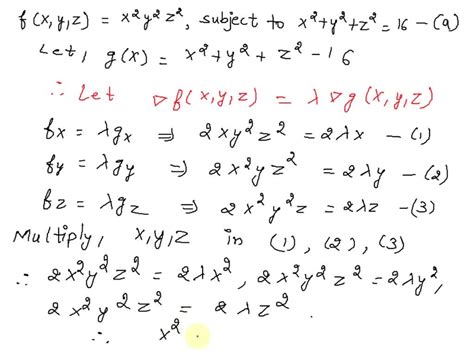 f(x,y,z) = x²y²z², subject to x²+y²+z²=16 —(a)
Let, g(x) = x²+y²+z²-16
∴ Let ∇f(x,y,z) = λ∇g(x,y,z)
fx = λgx ⇒ 2xy²z² = 2λx —(1)
fy = λgy ⇒ 2x²yz² = 2λy —(2)
fz = λgz ⇒ 2x²y²z = 2λz —(3)
Multiply, x,y,z in (1), (2), (3)
∴ 2x²y²z² = 2λx², 2x²y²z² = 2λy²,
2x²y²z² = 2λz².
∴ x²